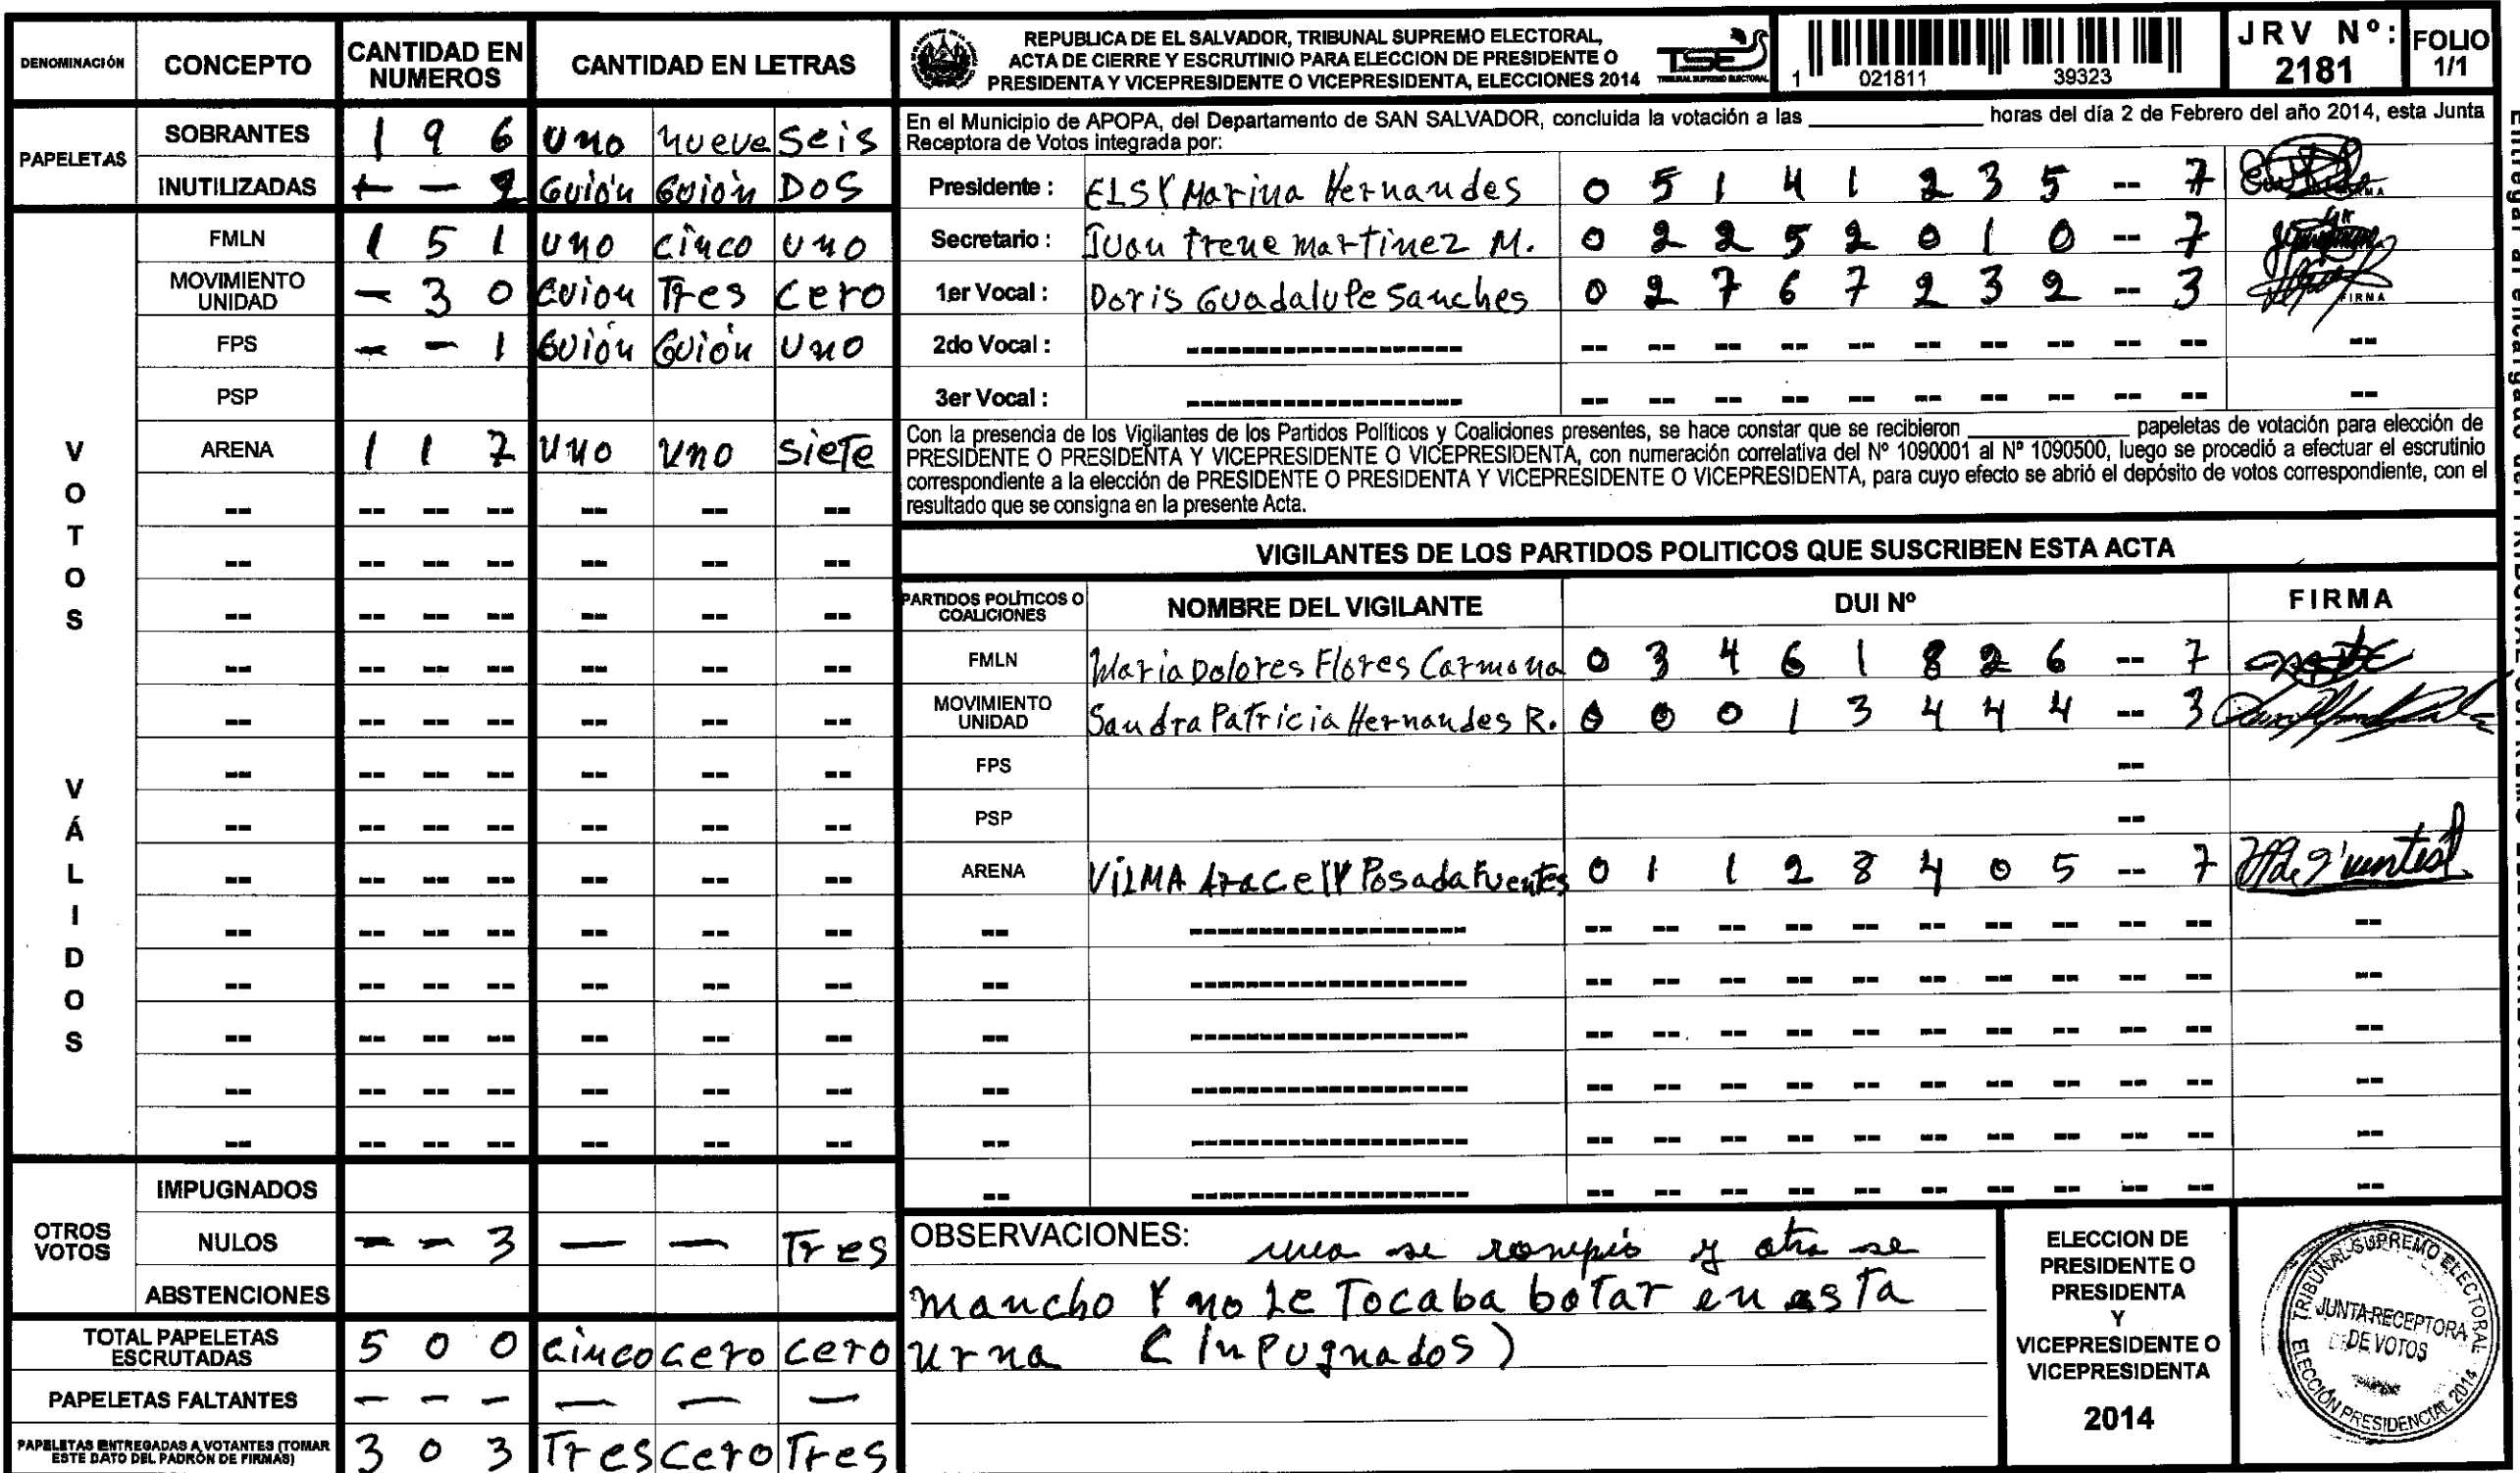 DENOMINACIÓN CONCEPTO CANTIDAD EN NUMEROS CANTIDAD EN LETRAS
PAPELETAS
SOBRANTES 1 9 6 uno nueve Seis
INUTILIZADAS - - 2 Guión Guión DOS
VOTOS VÁLIDOS
FMLN 1 5 1 uno cinco uno
MOVIMIENTO UNIDAD - 3 0 Guion Tres cero
FPS - - 1 Guión Guión uno
PSP
ARENA 1 1 7 uno uno siete
-- -- -- -- -- -- --
-- -- -- -- -- -- --
-- -- -- -- -- -- --
-- -- -- -- -- -- --
-- -- -- -- -- -- --
-- -- -- -- -- -- --
-- -- -- -- -- -- --
-- -- -- -- -- -- --
-- -- -- -- -- -- --
-- -- -- -- -- -- --
-- -- -- -- -- -- --
-- -- -- -- -- -- --
-- -- -- -- -- -- --
OTROS VOTOS
IMPUGNADOS
NULOS - - 3 - - Tres
ABSTENCIONES
TOTAL PAPELETAS ESCRUTADAS 5 0 0 cinco cero cero
PAPELETAS FALTANTES - - - - - -
PAPELETAS ENTREGADAS A VOTANTES (TOMAR ESTE DATO DEL PADRÓN DE FIRMAS) 3 0 3 Tres Cero Tres
REPUBLICA DE EL SALVADOR, TRIBUNAL SUPREMO ELECTORAL,
ACTA DE CIERRE Y ESCRUTINIO PARA ELECCION DE PRESIDENTE O
PRESIDENTA Y VICEPRESIDENTE O VICEPRESIDENTA, ELECCIONES 2014
TSE
TRIBUNAL SUPREMO ELECTORAL
1 021811 39323
JRV Nº: 2181
FOLIO 1/1
En el Municipio de APOPA, del Departamento de SAN SALVADOR, concluida la votación a las ____________ horas del día 2 de Febrero del año 2014, esta Junta
Receptora de Votos integrada por:
Presidente : ELSY Marina Hernandes 0 5 1 4 1 2 3 5 -- 7
Secretario : Juan Irene martinez M. 0 2 2 5 2 0 1 0 -- 7
1er Vocal : Doris Guadalupe Sanches 0 2 7 6 7 2 3 2 -- 3 FIRMA
2do Vocal : -------------------- -- -- -- -- -- -- -- -- -- -- --
3er Vocal : -------------------- -- -- -- -- -- -- -- -- -- -- --
Con la presencia de los Vigilantes de los Partidos Políticos y Coaliciones presentes, se hace constar que se recibieron ____________ papeletas de votación para elección de
PRESIDENTE O PRESIDENTA Y VICEPRESIDENTE O VICEPRESIDENTA, con numeración correlativa del Nº 1090001 al Nº 1090500, luego se procedió a efectuar el escrutinio
correspondiente a la elección de PRESIDENTE O PRESIDENTA Y VICEPRESIDENTE O VICEPRESIDENTA, para cuyo efecto se abrió el depósito de votos correspondiente, con el
resultado que se consigna en la presente Acta.
VIGILANTES DE LOS PARTIDOS POLITICOS QUE SUSCRIBEN ESTA ACTA
PARTIDOS POLÍTICOS O COALICIONES NOMBRE DEL VIGILANTE DUI Nº FIRMA
FMLN Maria Dolores Flores Carmona 0 3 4 6 1 8 2 6 -- 7
MOVIMIENTO UNIDAD Sandra Patricia Hernandes R. 0 0 0 1 3 4 4 4 -- 3
FPS --
PSP --
ARENA VilMA Aracely Posada Fuentes 0 1 1 2 8 4 0 5 -- 7
-- -------------------- -- -- -- -- -- -- -- -- -- -- --
-- -------------------- -- -- -- -- -- -- -- -- -- -- --
-- -------------------- -- -- -- -- -- -- -- -- -- -- --
-- -------------------- -- -- -- -- -- -- -- -- -- -- --
-- -------------------- -- -- -- -- -- -- -- -- -- -- --
-- -------------------- -- -- -- -- -- -- -- -- -- -- --
OBSERVACIONES: una se rompio y otra se
mancho Y no Le Tocaba botar en esta
urna (Inpugnados)
ELECCION DE
PRESIDENTE O
PRESIDENTA
Y
VICEPRESIDENTE O
VICEPRESIDENTA
2014
TRIBUNAL SUPREMO ELECTORAL
JUNTA RECEPTORA
DE VOTOS
ELECCIÓN PRESIDENCIAL 2014